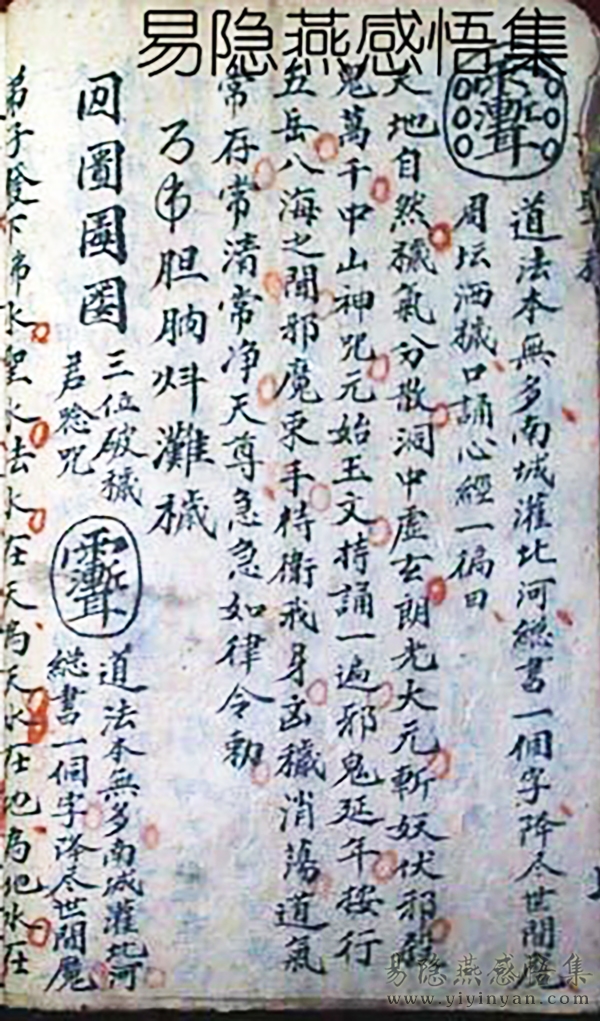 易隐燕感悟集
道法本無多南城灌北河總書一個字降尽世間魔
周坛洒穢口誦心經一徧曰
天地自然穢氣分散洞中虛玄朗光大元斬妖伏邪
鬼萬千中山神咒元始玉文持誦一遍邪鬼延年按行
五岳八海之間邪魔束手侍衛我身凶穢消蕩道氣
常存常清常净天尊急急如律令勅
胆胸炓灘穢
三位破穢
君唸咒
道法本無多南城灌北河
總書一個字降尽世間魔
弟子登下 水聖水法水在天為天水在地為地水在
易隐燕感悟集
www.yiyinyan.com